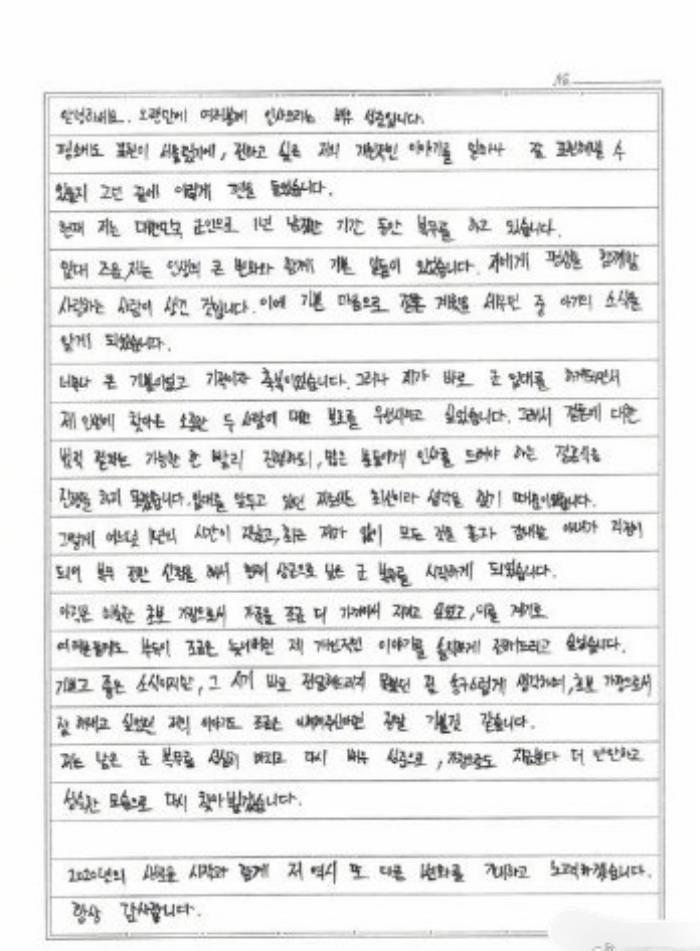 No
안녕하세요. 오랜만에 여러분께 인사드리는 배우 성준입니다.
평소에도 표현이 서툴렀기에, 전하고 싶은 저의 개인적인 이야기를 얼마나 잘 표현해낼 수
있을지 고민 끝에 이렇게 펜을 들었습니다.
현재 저는 대한민국 군인으로 1년 남짓한 기간 동안 복무를 하고 있습니다.
입대 즈음, 저는 인생의 큰 변화와 함께 기쁜 일들이 있었습니다. 저에게 평생을 함께할
사랑하는 사람이 생긴 것입니다. 이에 기쁜 마음으로 결혼 계획을 세우던 중 아기의 소식을
알게 되었습니다.
너무나 큰 기쁨이었고 기적이자 축복이었습니다. 그러나 제가 바로 군 입대를 하게되면서
제 인생에 찾아온 소중한 두 사람에 대한 보호를 우선시하고 싶었습니다. 그래서 결혼에 대한
법적 절차는 가능한 한 빨리 진행하되, 많은 분들에게 인사를 드려야 하는 결혼식은
진행을 하지 못했습니다. 입대를 앞두고 있던 저로서는 최선이라 생각을 했기 때문이었습니다.
그렇게 어느덧 1년의 시간이 지났고, 최근 제가 없이 모든 것을 혼자 감내할 아내가 걱정이
되어 복무 전환 신청을 해서 현재 상근으로 남은 군 복무를 시작하게 되었습니다.
아직은 미숙한 초보 가장으로서 가족을 조금 더 가까이서 지키고 싶었고, 이를 계기로
여러분들께도 부득이 조금은 늦어버린 제 개인적인 이야기를 솔직하게 전해드리고 싶었습니다.
기쁘고 좋은 소식이지만, 그 시기 바로 전달해드리지 못했던 점 송구스럽게 생각하며, 초보 가장으로서
잘 해내고 싶었던 저의 이야기도 조금은 이해해주신다면 정말 기쁠것 같습니다.
저는 남은 군 복무를 성실히 마치고 다시 배우 성준으로, 가장으로도 지금보다 더 단단하고
성숙한 모습으로 다시 찾아 뵙겠습니다.
2020년의 새로운 시작과 함께 저 역시 또 다른 변화를 기대하고 노력하겠습니다.
항상 감사합니다.